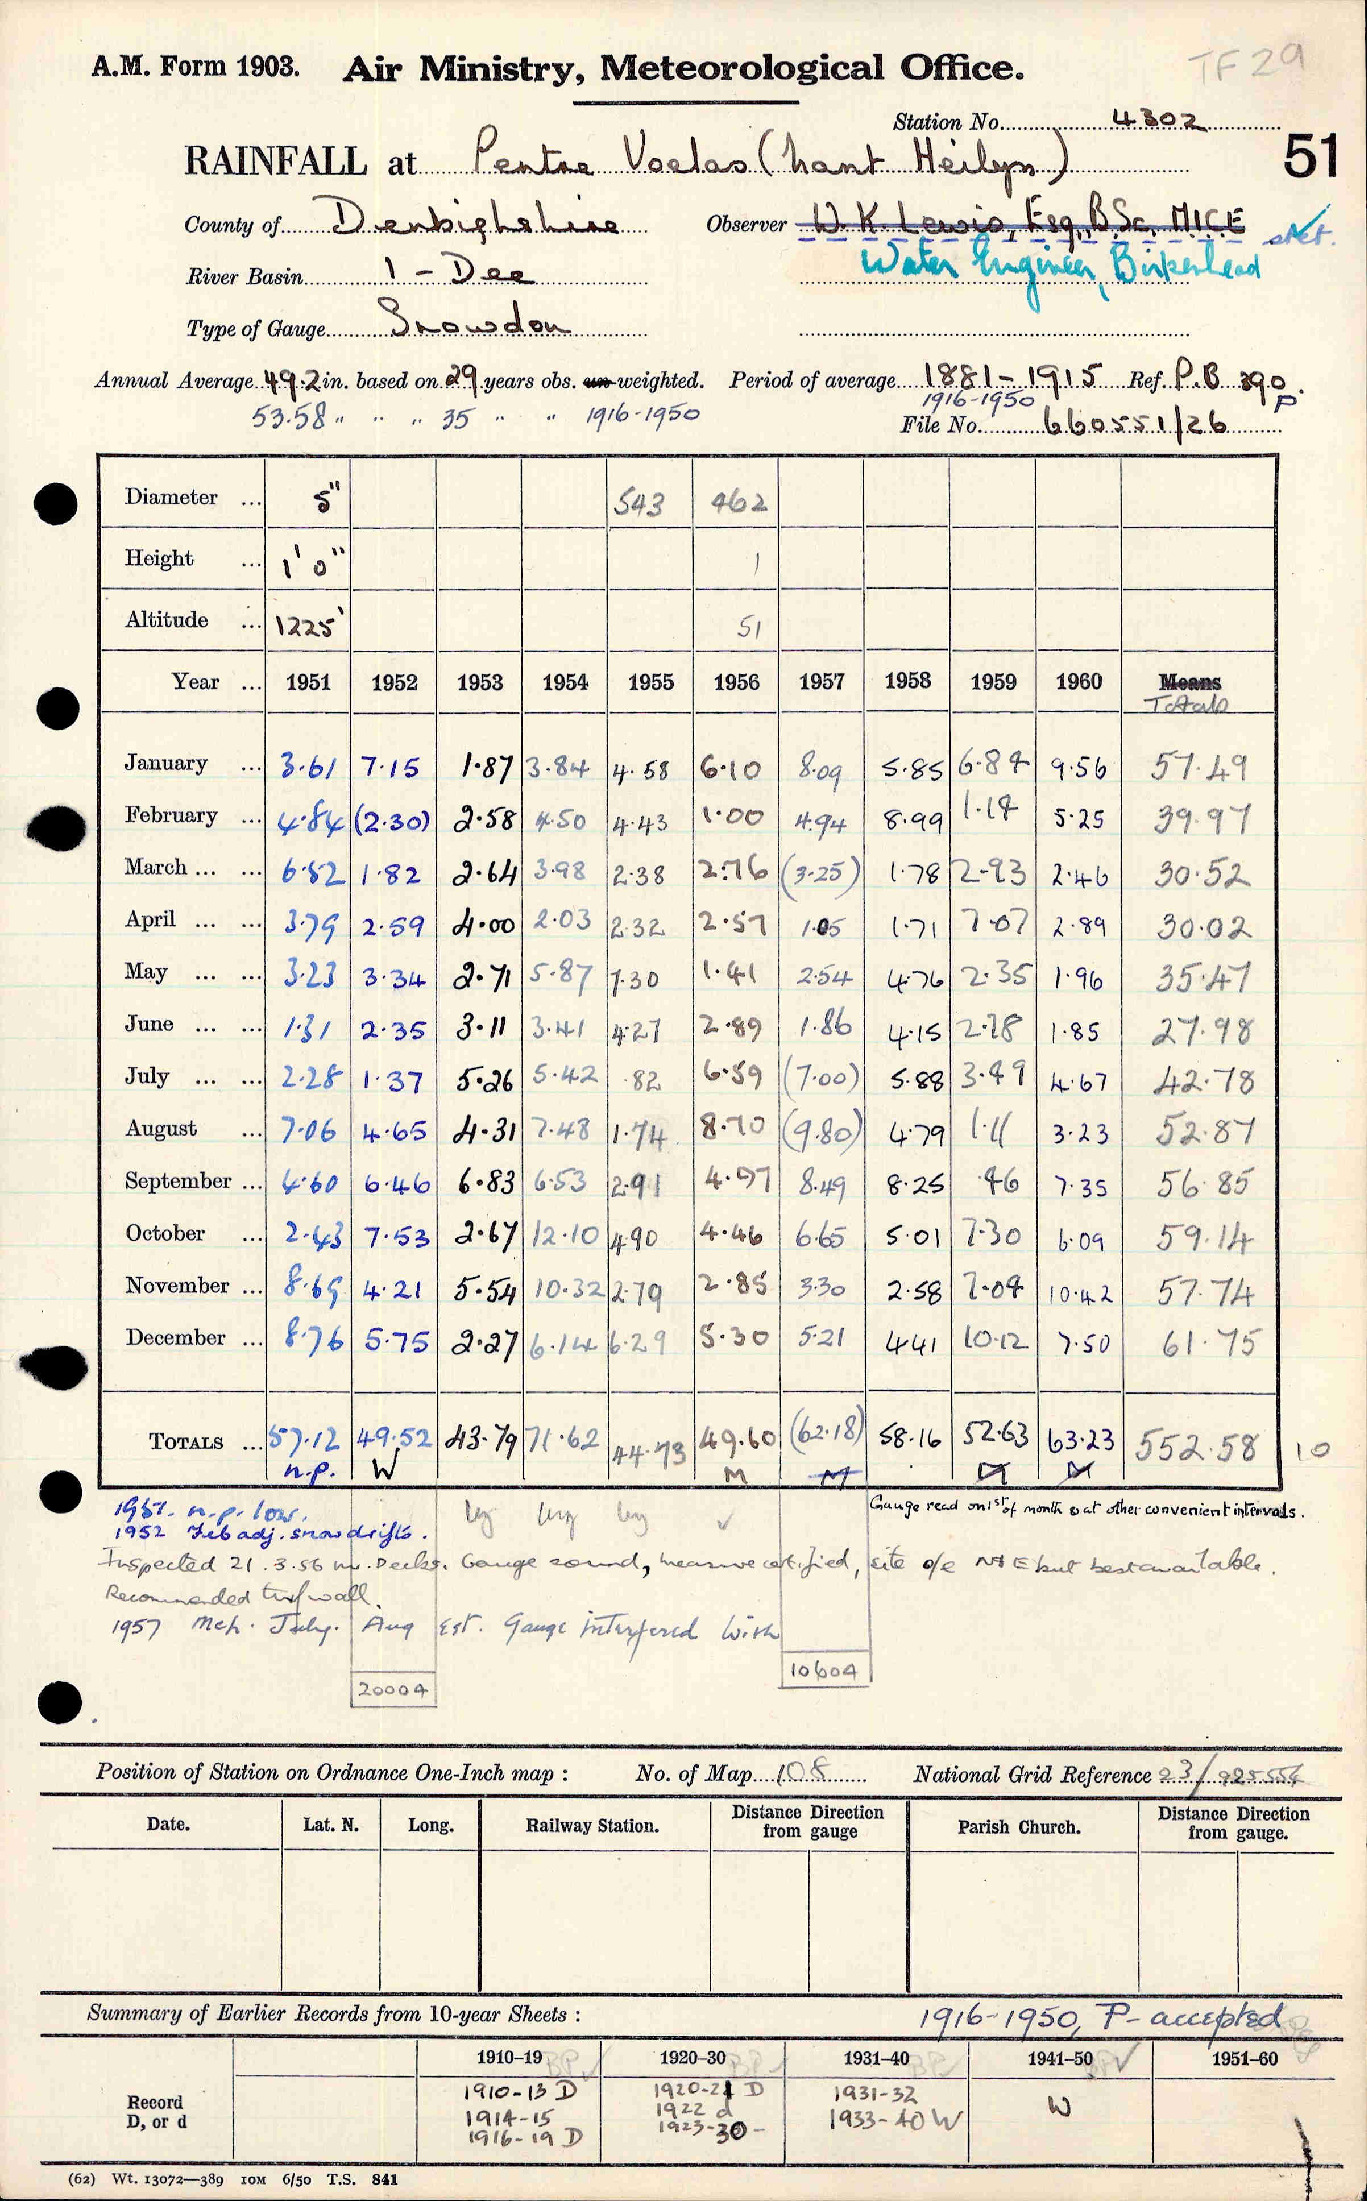 TF 29
A.M. Form 1903. Air Ministry, Meteorological Office.
Station No. 4302
51
RAINFALL at Pentre Voelas (Nant Heilyn)
County of Denbighshire Observer W. K. Lewis, Esq., B.Sc. M.I.C.E stet.
River Basin 1 - Dee Water Engineer, Birkenhead
Type of Gauge Snowdon
Annual Average 49.2 in. based on 29 years obs. un-weighted. Period of average 1881-1915 Ref. P.B 390.
53.58 " " " 35 " " 1916-1950 1916-1950 P
File No. 660551/26
Diameter ... 5" 543 462
Height ... 1' 0" 1
Altitude ... 1225' 51
Year ... 1951 1952 1953 1954 1955 1956 1957 1958 1959 1960 Means
Totals
January ... 3.61 7.15 1.87 3.84 4.58 6.10 8.09 5.85 6.84 9.56 57.49
February ... 4.84 (2.30) 2.58 4.50 4.43 1.00 4.94 8.99 1.14 5.25 39.97
March ... ... 6.52 1.82 2.64 3.98 2.38 2.76 (3.25) 1.78 2.93 2.46 30.52
April ... ... 3.79 2.59 4.00 2.03 2.32 2.57 1.05 1.71 7.07 2.89 30.02
May ... ... 3.23 3.34 2.71 5.87 7.30 1.41 2.54 4.76 2.35 1.96 35.47
June ... ... 1.31 2.35 3.11 3.41 4.27 2.89 1.86 4.15 2.78 1.85 27.98
July ... ... 2.28 1.37 5.26 5.42 .82 6.59 (7.00) 5.88 3.49 4.67 42.78
August ... 7.06 4.65 4.31 7.48 1.74 8.70 (9.80) 4.79 1.11 3.23 52.87
September ... 4.60 6.46 6.83 6.53 2.91 4.97 8.49 8.25 .46 7.35 56.85
October ... 2.43 7.53 2.67 12.10 4.90 4.46 6.65 5.01 7.30 6.09 59.14
November ... 8.69 4.21 5.54 10.32 2.79 2.85 3.30 2.58 7.04 10.42 57.74
December ... 8.76 5.75 2.27 6.14 6.29 5.30 5.21 4.41 10.12 7.50 61.75
TOTALS ... 57.12 49.52 43.79 71.62 44.73 49.60 (62.18) 58.16 52.63 63.23 552.58 10
n.p. W M M M M
1951. n.p. low. Gauge read on 1st of month & at other convenient intervals.
1952 Feb adj. snow drifts.
Inspected 21.3.56 Gauge sound, measure certified, site o/e but best available.
Recommended turf wall.
1957 Mch. July. Aug Est. Gauge interfered with
10604
20004
Position of Station on Ordnance One-Inch map : No. of Map 108 National Grid Reference 23/925554
Date. Lat. N. Long. Railway Station. Distance Direction from gauge Parish Church. Distance Direction from gauge.
Summary of Earlier Records from 10-year Sheets : 1916-1950, P - accepted
1910–19 1920–30 1931–40 1941–50 1951–60
Record D, or d
1910-13 D 1920-21 D 1931-32 W
1914-15 1922 d 1933-40 W
1916-19 D 1923-30 -
(62) Wt. 13072—389 10M 6/50 T.S. 841